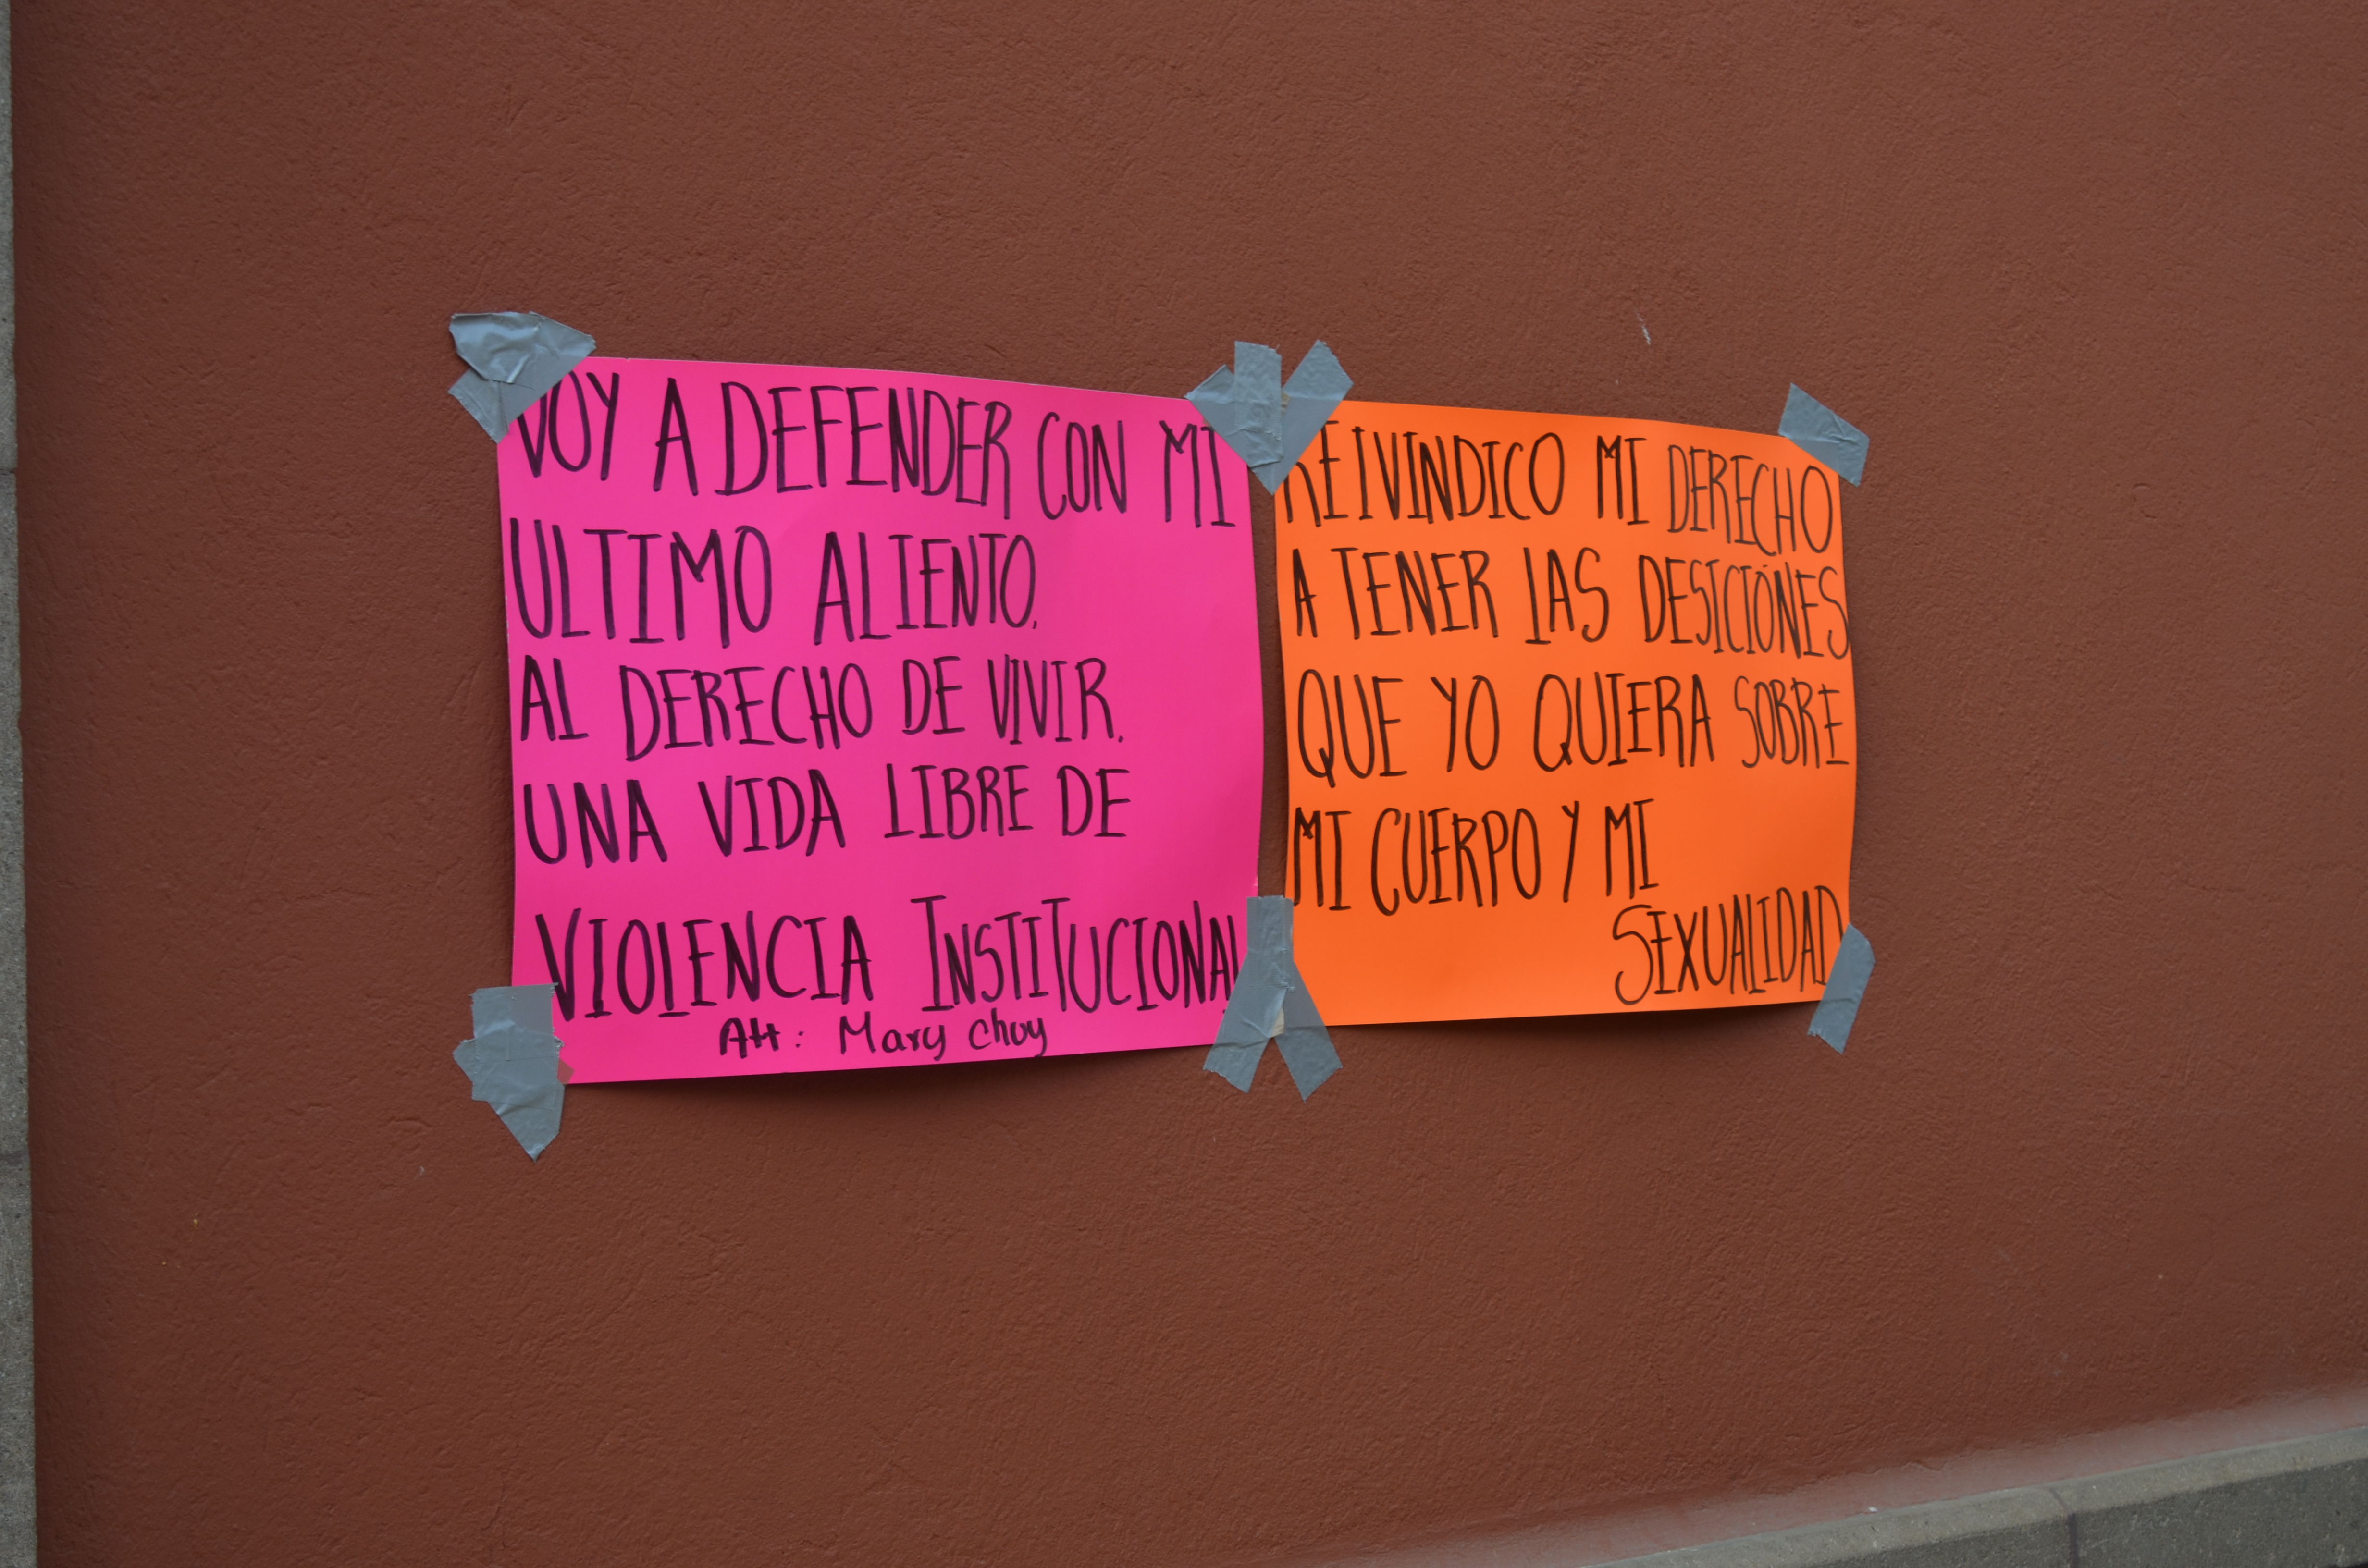 VOY A DEFENDER CON MI
ULTIMO ALIENTO.
AL DERECHO DE VIVIR.
UNA VIDA LIBRE DE
VIOLENCIA INSTITUCIONAL
Att: Mary Chuy
REIVINDICO MI DERECHO
A TENER LAS DESICIONES
QUE YO QUIERA SOBRE
MI CUERPO Y MI
SEXUALIDAD